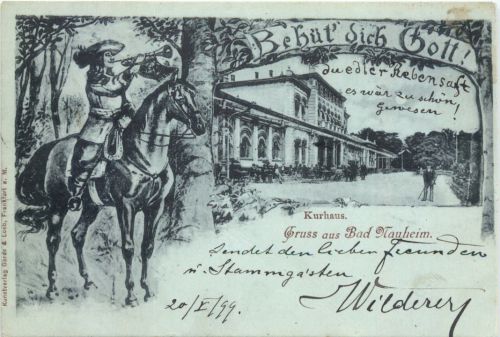 Behüt' dich Gott!
du edler Rebensaft
es wär zu schön
gewesen!
Kurhaus.
Gruss aus Bad Nauheim.
Sendet den lieben Freunden
u. Stammgästen
Wilderer
20/V/99.